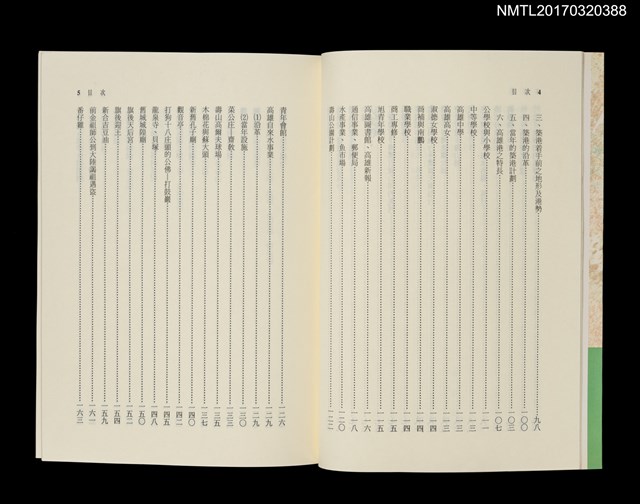 NMTL20170320388
目次 4
三、築港着手前之地形及港勢……九八
四、築港的沿革……一〇〇
五、當年的築港計劃……一〇三
六、高雄港之特長……一〇七
公學校與小學校……一一一
中等學校……一一三
高雄中學……一一三
高雄高女……一一四
淑德女學校……一一四
商補與南鵬……一一四
職業學校……一一五
商工專修……一一五
旭青年學校……一一五
高雄圖書館、高雄新報……一一六
通信事業、郵便局……一一八
水產事業、魚市場……一二〇
壽山公園計劃……一二二
5 目次
青年會館……一二六
高雄自來水事業……一二九
(1)沿革……一二九
(2)當年設施……一三〇
菜公庄—齋教……一三三
壽山高爾夫球場……一三五
木棉花與蘇大頭……一三七
新舊孔子廟……一四〇
觀音亭……一四二
打狗十八庄頭的公佛—打鼓巖……一四五
龍泉寺、貝塚……一四八
舊鳳城隍廟……一五〇
旗後天后宮……一五二
旗後鎧王……一五四
新合吉豆油……一五九
前金祖師公到大陸謁祖遇盜……一六一
番仔雞……一六三